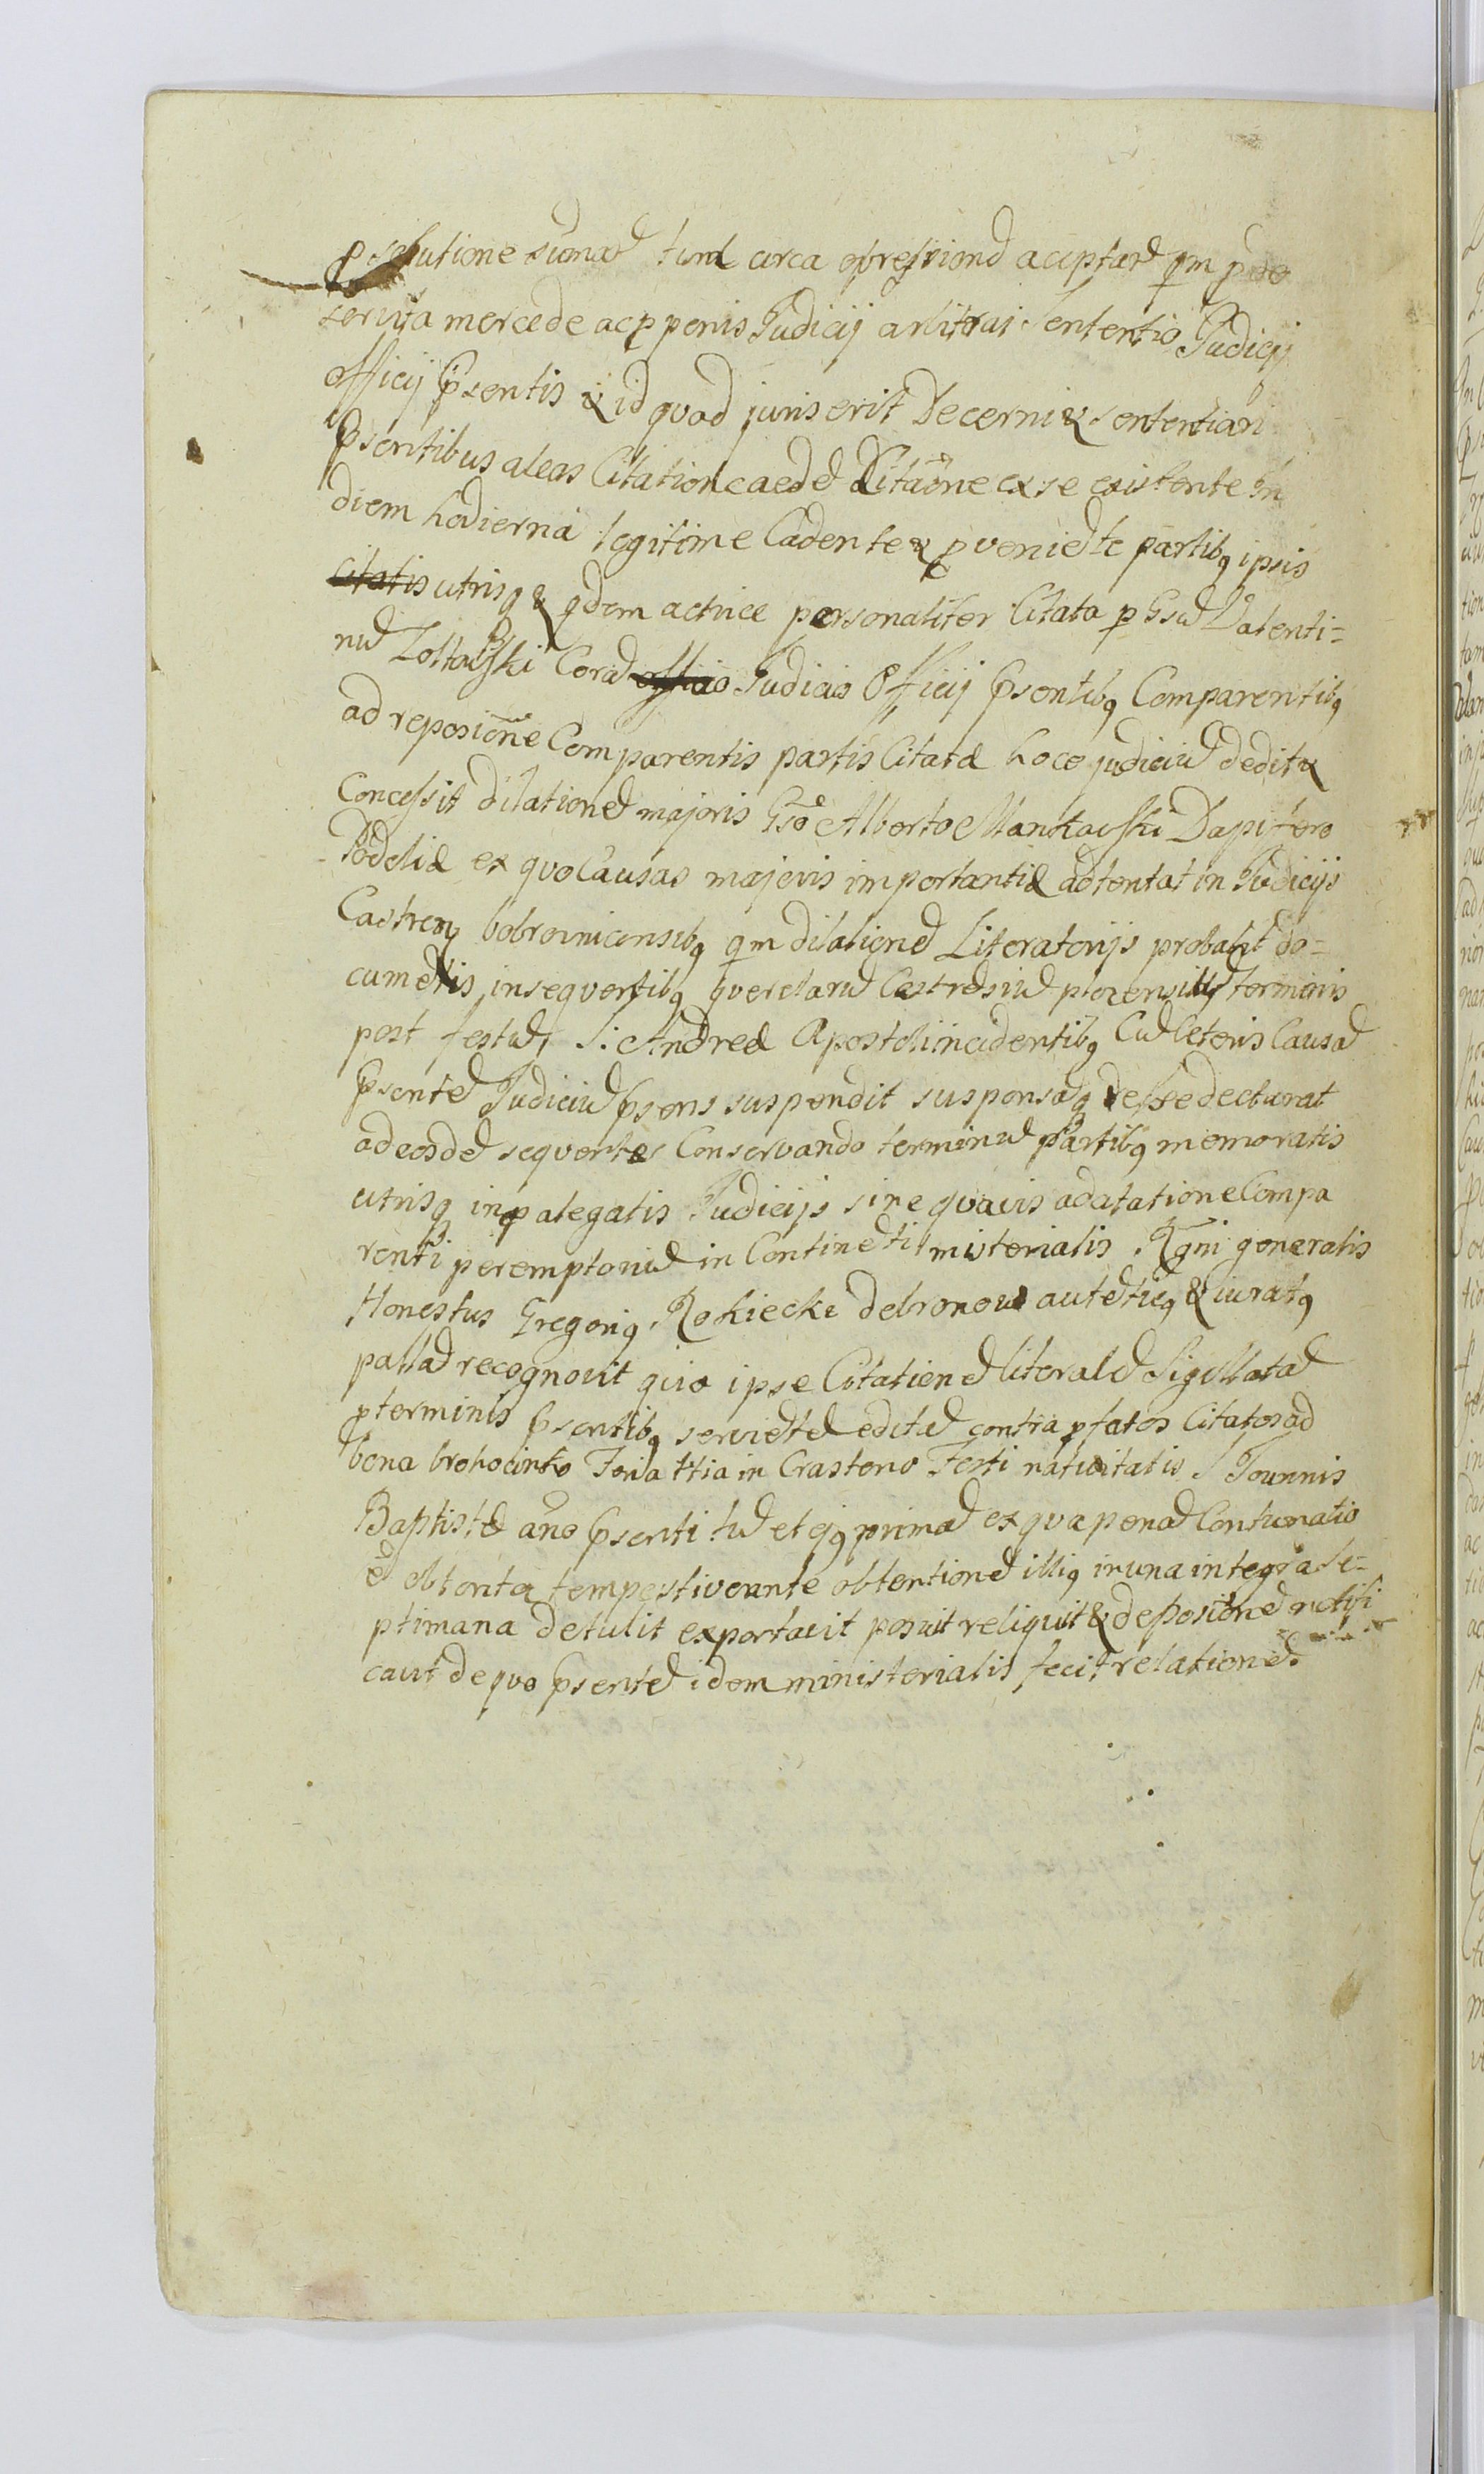 solutione sumae tum circa opressione acceptare qm pro
servita mercede ac p penis Judicij arbitrai sententio Judicij
officij psentis & id quod juris erit Decerni & sententiari
Psentibus aleas Citatione aede Citaone ex se existente In
diem hodierna legitime Cadente & pvenietē partibq ipsis
citatis utrisq & qdem actrice personaliter Citata p Gsu Valenti=
nū Zoltowski Corā officio Judicio Officij Psentibq Comparentibq
ad reposicione Comparentis partis Citatae Loco judiciū dedit &
Concessit dilationē majoris Gso Alberto Mankowski Dapifero
Podoliae ex quo Causas majoris importantiae adtentat in Judicijs
Castren bobrovnicensibq qm dilationē Literatorijs probabit do=
cumētis insequentibq querelarū Castrēsiū plocensiū terminis
post festū S: Andreae Apostoli incidentibq Cū Ceteris Causā
Psentē Judiciū Psens suspendit suspensāq esse declarat
ad eosdē sequentes Conservando terminū partibq memoratis
utrisq in palegatis Judicijs sine quavis adcitatione Compa
rendi peremptoriū in Continēti misterialis Rgni generalis
Honestus Gregoriq Rokiecki debronow autēticq & iuratq
pallā recognovit quo ipse Citationē literalē Sigillatā
pterminis Psentibq serviētē editā contra pfatos Citatos ad
bona brohocinko Feria ttia in Crastono Festi nativitatis S Joannis
Baptistae ano Psenti tū et ejq primā ex qua penā Contumatio
ē obtenta tempestiveante obtentionē illiq in una integra se=
ptimana detulit exportavit posuit reliquit & deposicione notifi
cavit de quo Psentē idem ministerialis fecit relationē.